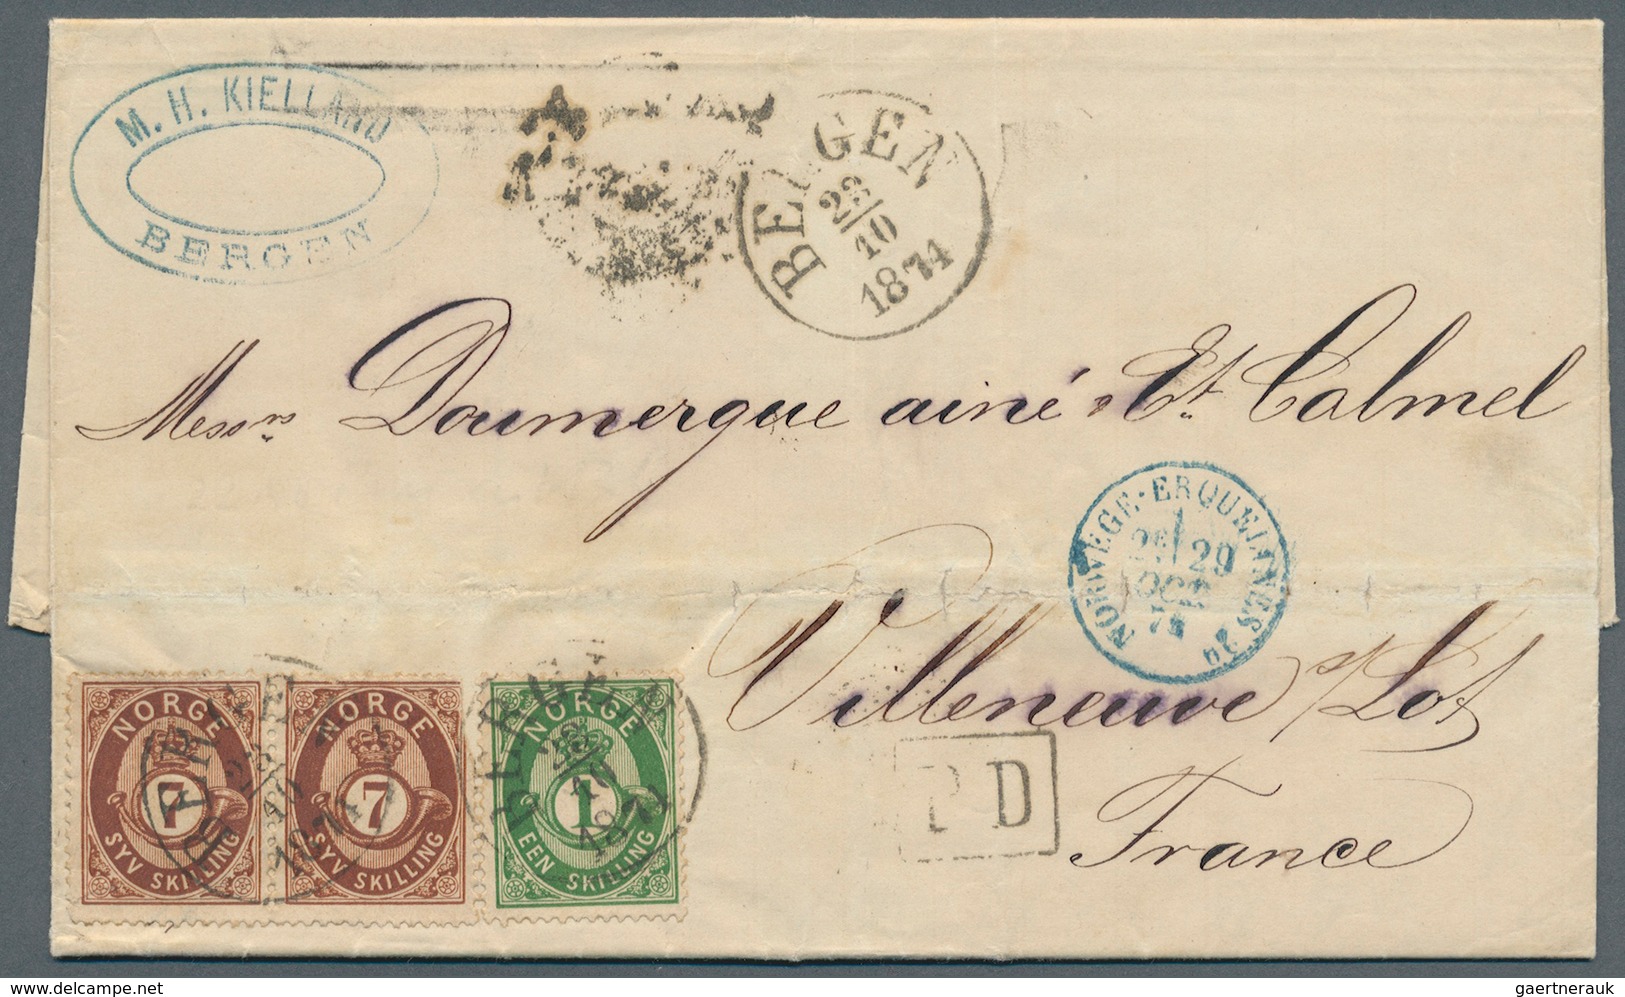 M. H. KIELLAND
BERGEN
BERGEN
23/10
1874
Messrs Doumergue ainé & Et. Calmel
NORWEGE-ERQUELINES
29
OCT
Villeneuve s/Lot
France
PD
NORGE
7
SYV SKILLING
NORGE
7
SYV SKILLING
NORGE
1
EEN SKILLING
BERGEN
23
10
1874
BERGEN
23/10
1874
gaertnerauk